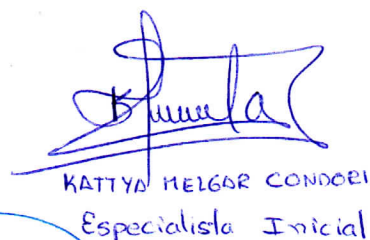 KATTYA MELGAR CONDORI
Especialista Inicial